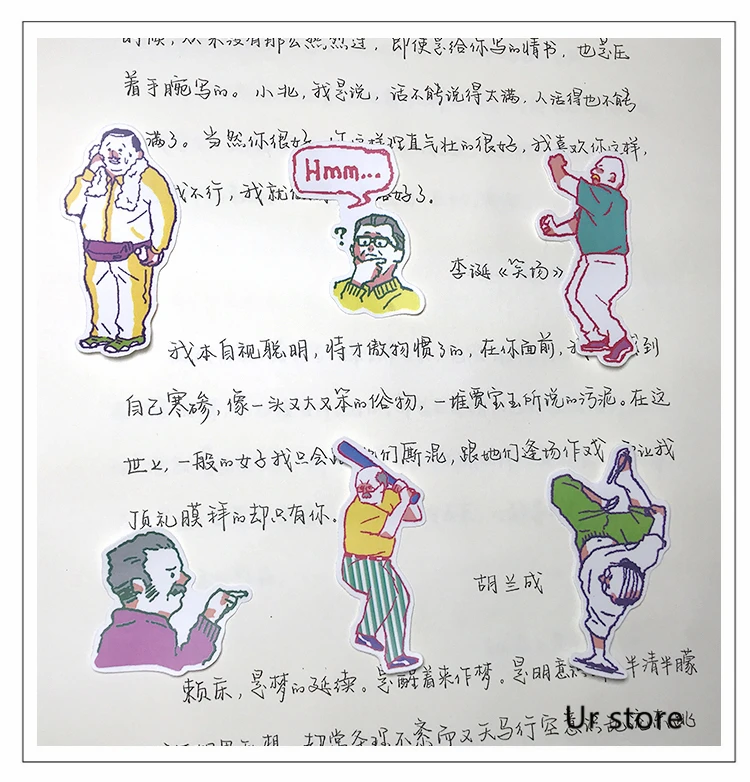 时候，从来没有那么熬过，即使是给你写的情书，也是压
着手腕写的。小北，我是说，话不能说得太满，人活得也不能
满了。当然你很好，你这样理直气壮的很好，我喜欢你这样，
不行，我就 好了。
Hmm...
?
李诞《笑场》
我本自视聪明，恃才傲物惯了的，在你面前， 到
自己寒碜，像一头又大又笨的俗物，一堆贾宝玉所说的污泥。在这
世上，一般的女子我只会 们厮混，跟她们逢场作戏 让我
顶礼膜拜的却只有你。
胡兰成
赖床，是梦的延续。是醒着来作梦。是明意 半清半朦
想， 不紊而又天马行空
Ur store